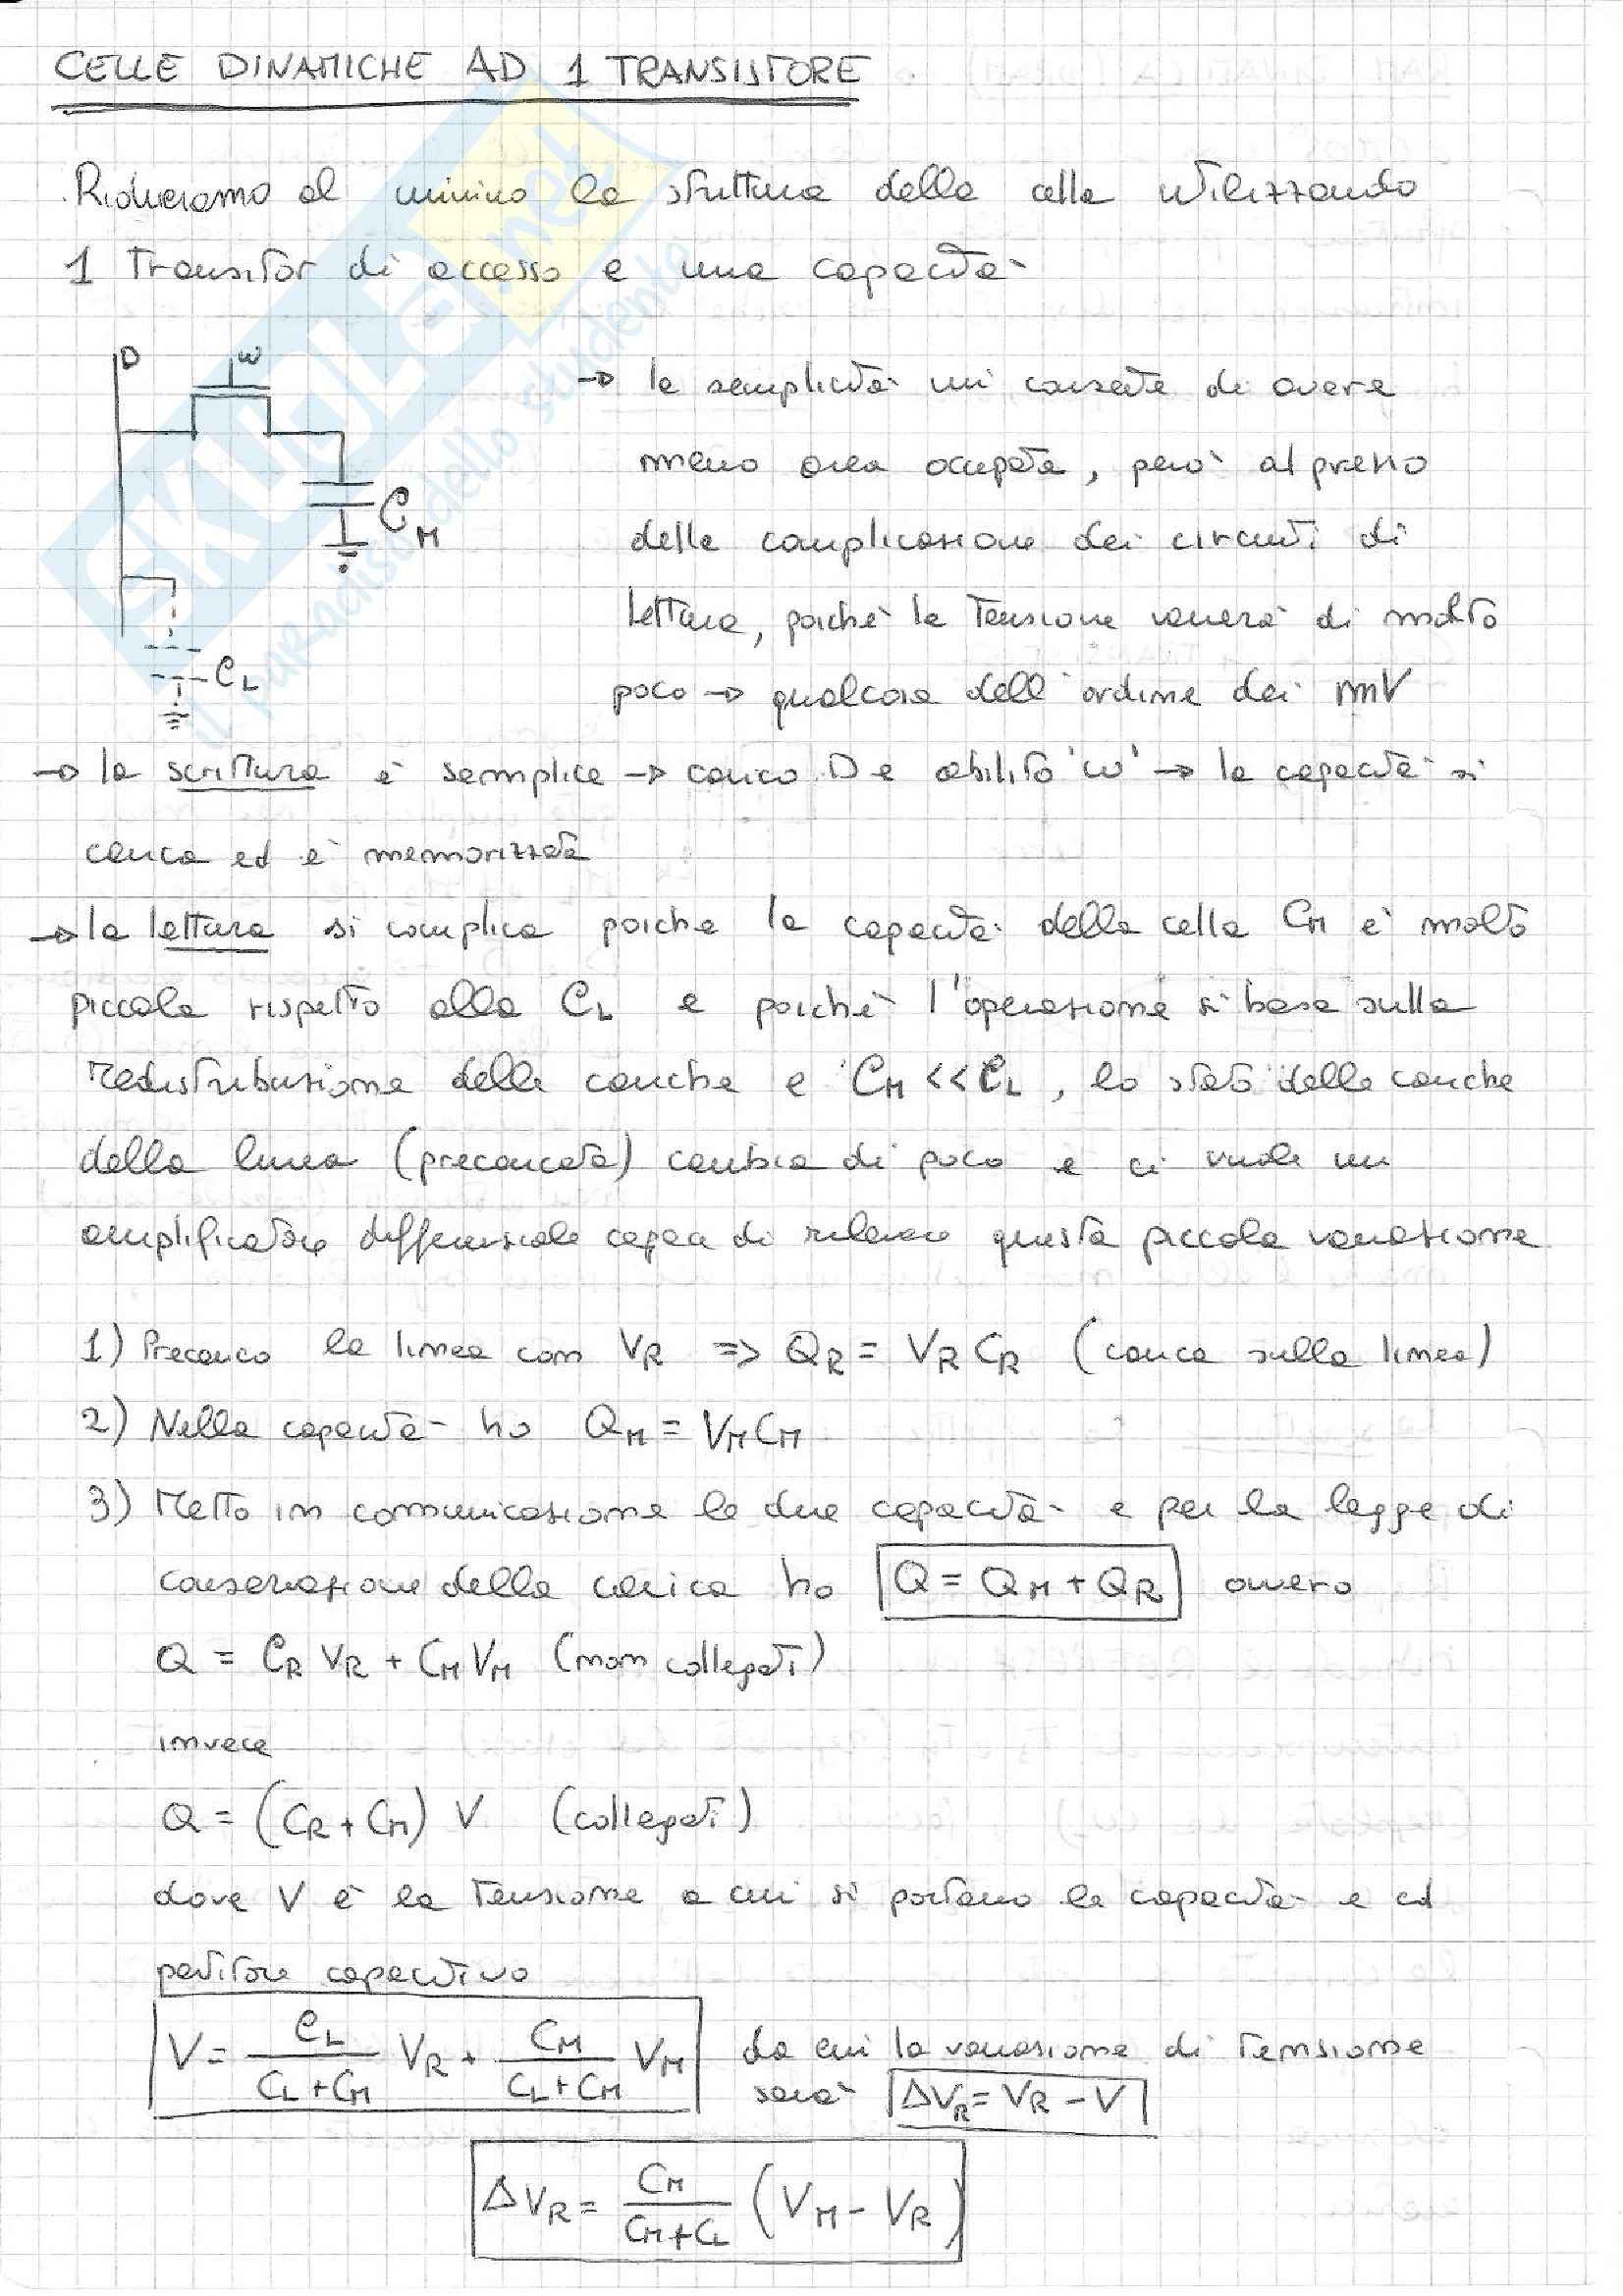 CELLE DINAMICHE AD 1 TRANSISTORE
Riduciamo al minimo la struttura della cella utilizzando
1 transistor di accesso e una capacità
D
W
CM
CL
→ la semplicità mi consente di avere
meno area occupata, però al prezzo
delle complicazione dei circuiti di
lettura, poiché la tensione varierà di molto
poco → qualcosa dell'ordine dei mV
→ la scrittura è semplice → carico D e abilito 'w' → la capacità si
carica ed è memorizzata
→ la lettura si complica poiché la capacità della cella CM è molto
piccola rispetto alla CL e poiché l'operazione si basa sulla
redistribuzione delle cariche e CM << CL, lo stato delle cariche
della linea (precaricata) cambia di poco e ci vuole un
amplificatore differenziale capace di rilevare questa piccola variazione
1) Precarico la linea con VR => QR = VR CR (carica sulla linea)
2) Nella capacità ho QM = VM CM
3) Metto in comunicazione le due capacità e per la legge di
conservazione della carica ho Q = QM + QR ovvero
Q = CR VR + CM VM (non collegati)
invece
Q = (CR + CM) V (collegati)
dove V è la tensione a cui si portano le capacità e col
partitore capacitivo
V = CL/(CL + CM) VR + CM/(CL + CM) VM da cui la variazione di tensione
sarà ΔVR = VR - V
ΔVR = CM/(CM + CL) (VM - VR)
SKUOLA.net
il paradiso dello studente